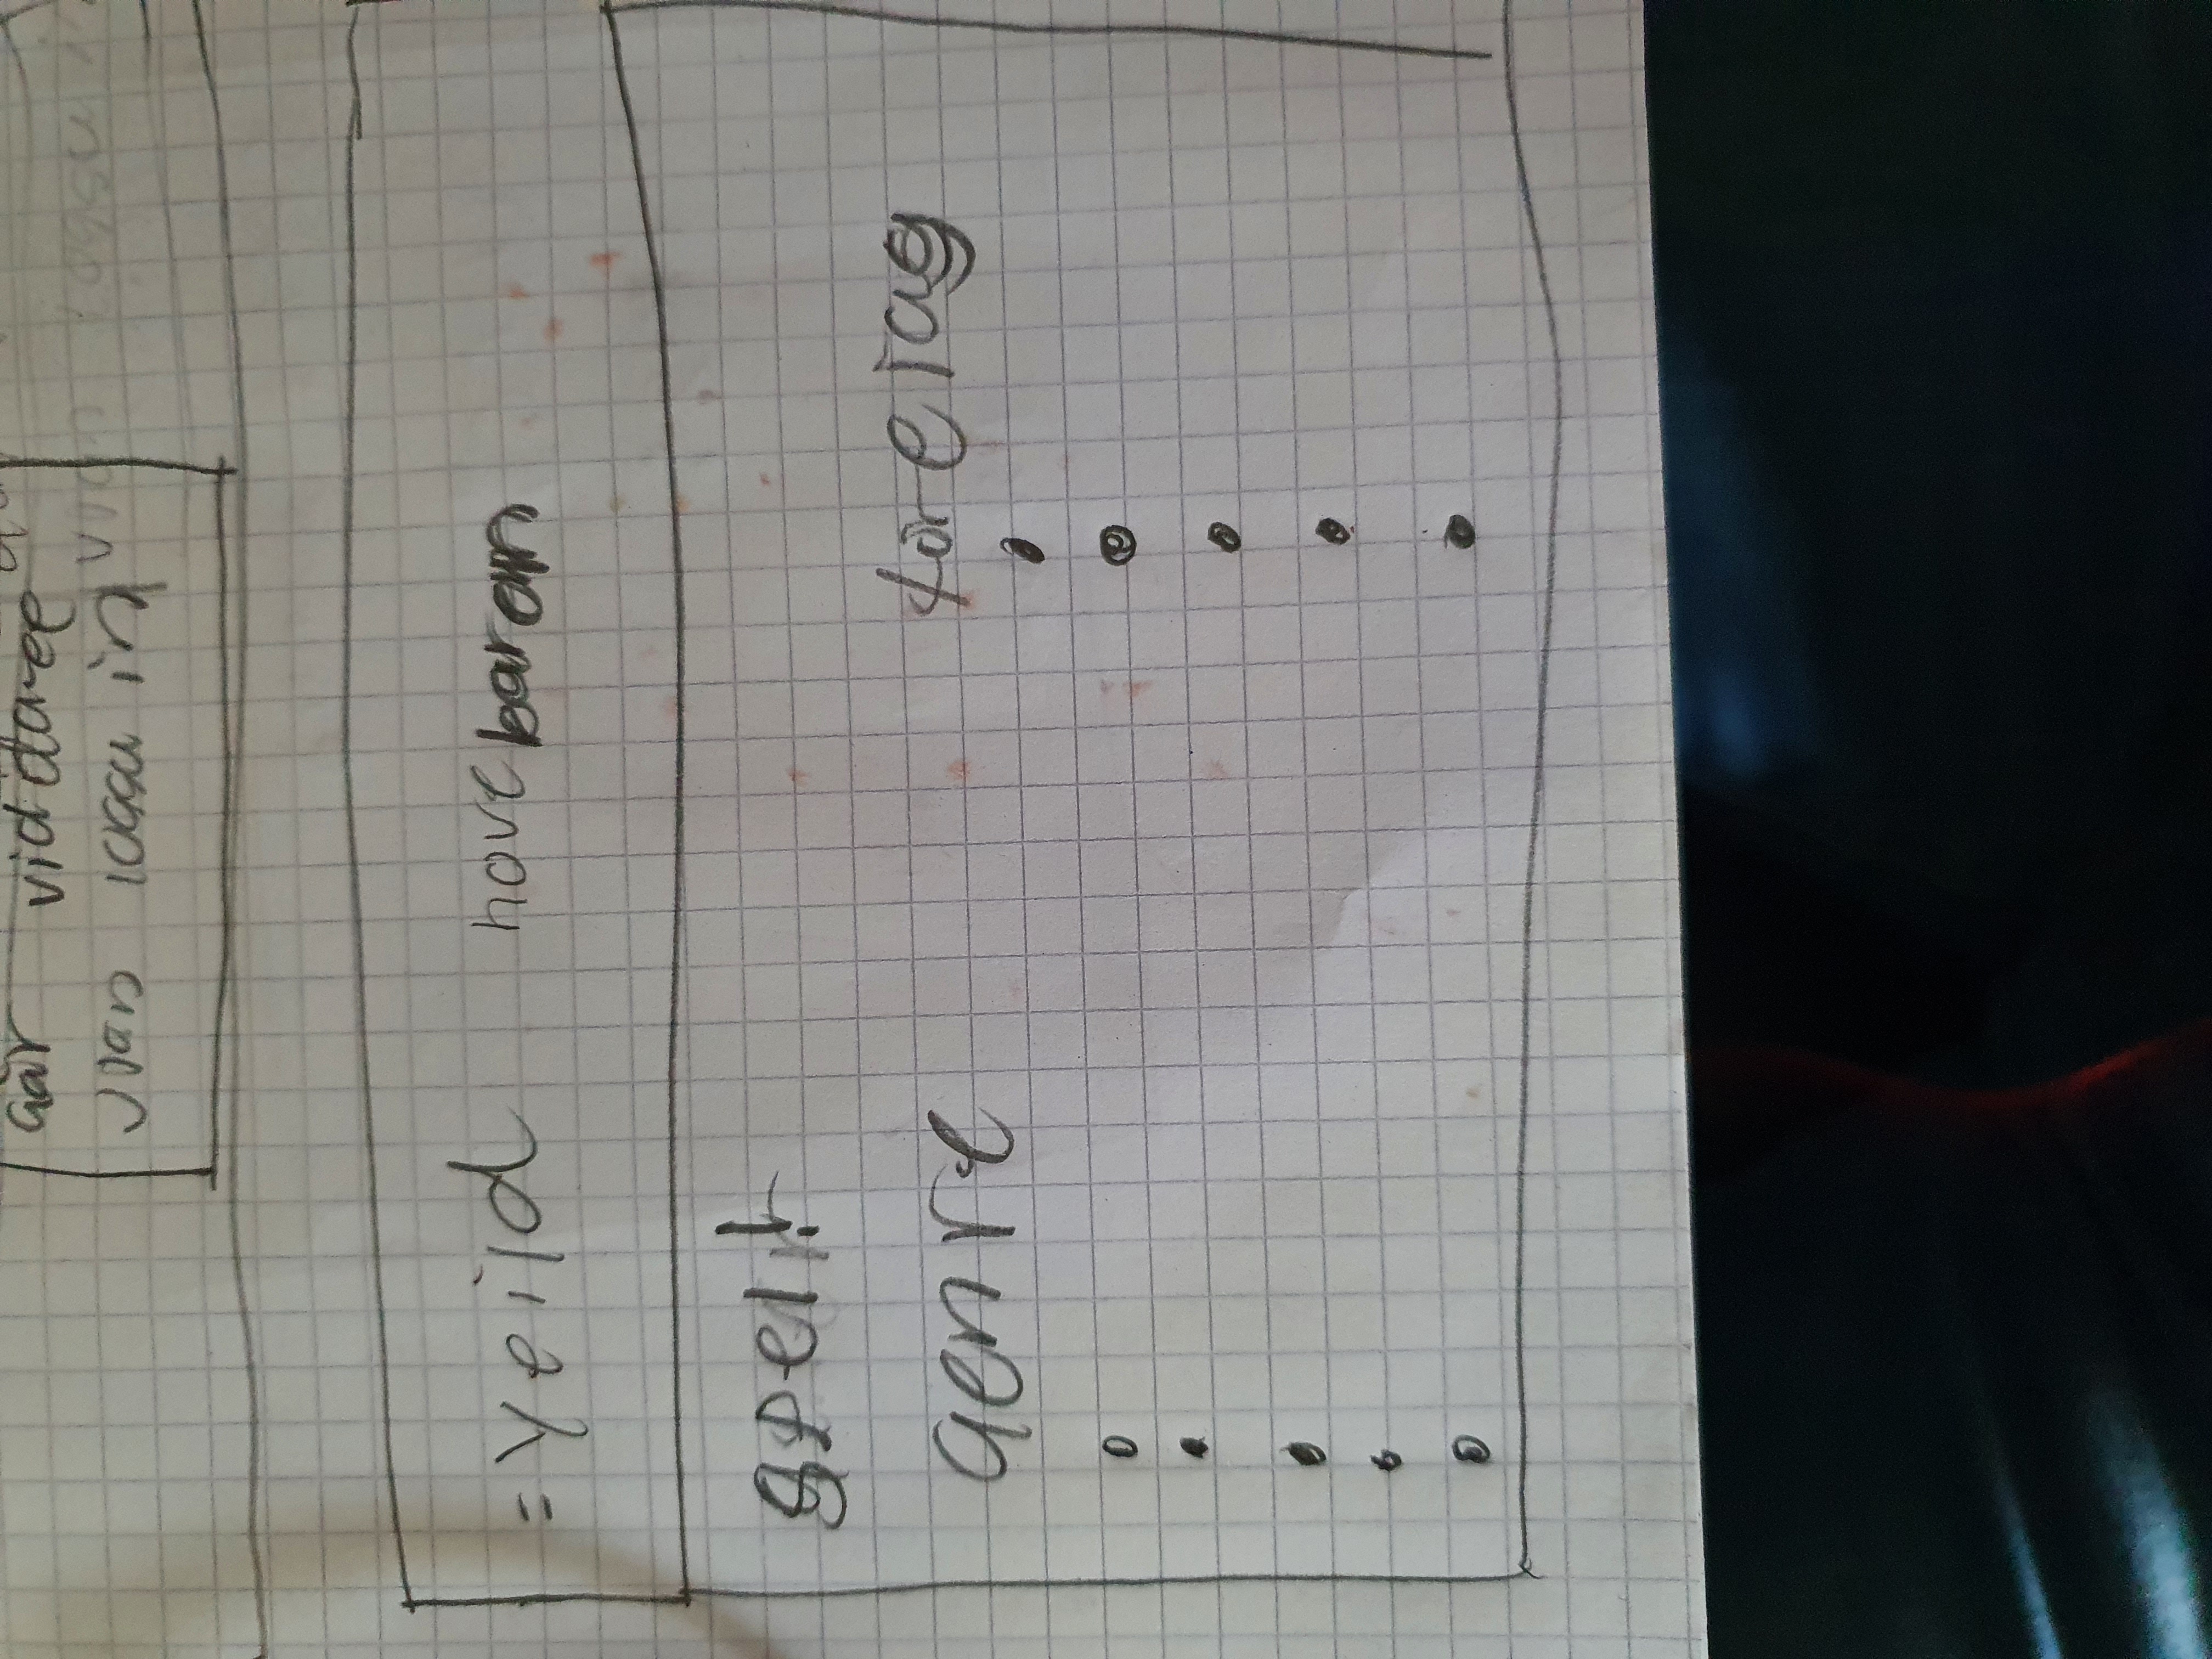 Går viddaree
utan logga in
= Yeild hovebaram
spel!
Genre företag